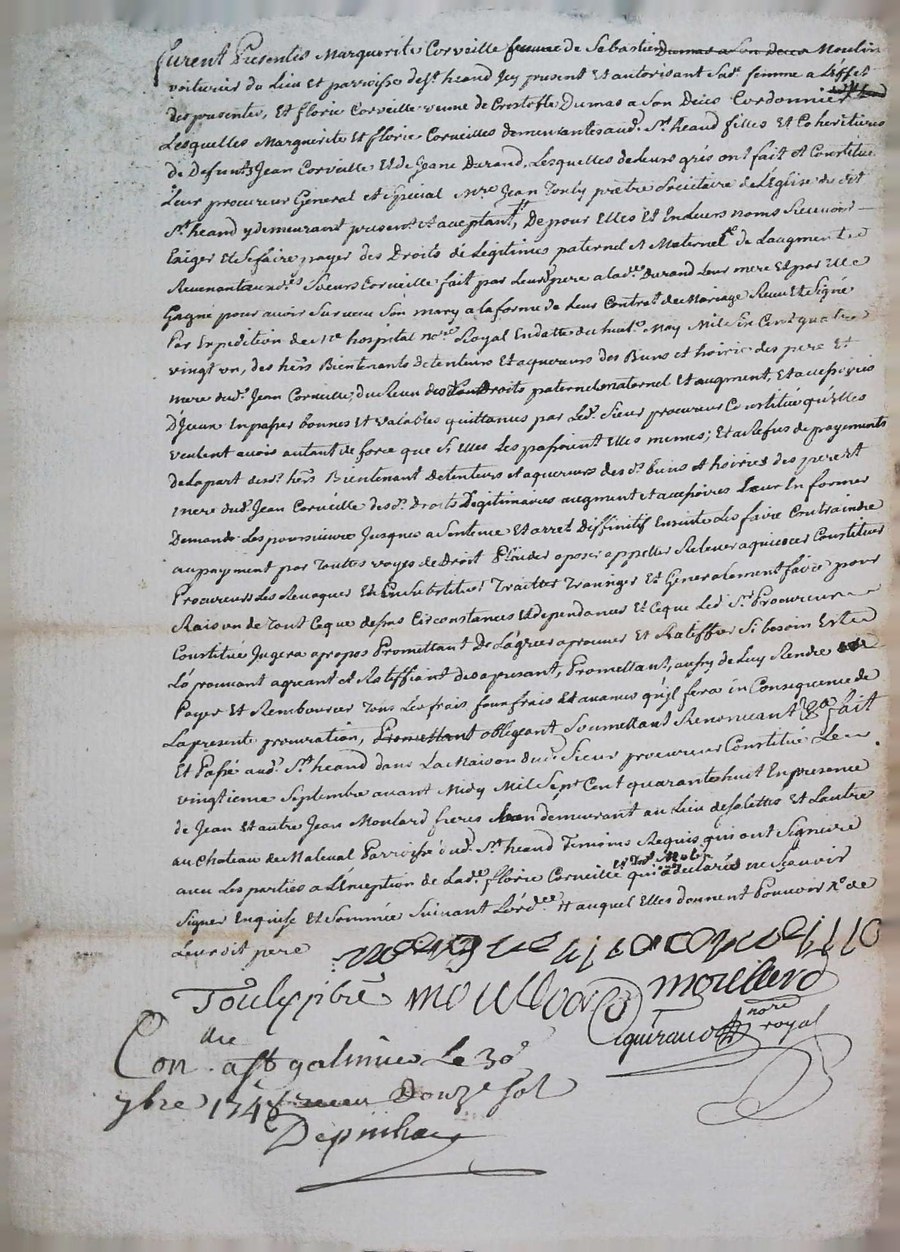 furent Presentes Marguerite Corveille femme de Sebastien Dumas a Son deces Moulin
voiturier du Lieu et parroisse de St heand Jcy present Et autorisant Sad. femme a L'effet
des presentes, Et florie Corveille veuve de Crestofle Dumas a Son Deces Cordonnier
Lesquelles Marguerite Et florie Corveilles demeurantes aud. St heand filles Et Coheritieres
de Defunts Jean Corveille Et de Jeane Durand, Lesquelles de leurs grés ont fait et Constitué
Leur procureur General et Special Mre Jean Touly prêtre Societaire de L'Eglise du dit
St heand y demeurant present et acceptant, De pour Elles Et En Leurs noms Recevoir
Exiger Et Se faire payer des Droits de Legitimes paternel Et Maternel Et de Laugment
Revenant auxd. Sœurs Corveille fait par Leurd. pere a lad. Durand Leur mere Et par Elle
Gagné pour avoir Survecu Son mary a la forme de Leur Contrat de Mariage Receu Et Signé
Par Expedition de hospital nore Royal En datte du huit May Mil Six Cent quatre
vingt un, des hers Bientenants detenteurs Et aquereurs des Biens et hoirie des pere Et
mere dud. Jean Corveille, du Receu des Droits paternel maternel Et augment, Et accessoires
D'Jceux En passer bonnes et valables quittances par Led. Sieur procureur Constitué qu'elles
veulent avoir autant de force que Si Elles Les passoient Elles mêmes; Et au Refus de payements
de La part desd. hers Bientenant Detenteurs Et aquereurs des d. biens et hoiries des pere Et
mere dud. Jean Corveille des d. Droits Legitimaires augment et accessoires Leur En former
Demande Les poursuivre Jusques a Sentence Et arret Diffinitif Ensuite Les faire Contraindre
au payement par Toutes voyes de Droit Plaider oposer appeller Relever aquiescer Constituer
Procureurs Les Revoquer Et En Substituer Traitter Transiger Et Generalement faire pour
Raison de Tout Ce que dessus Circonstances Et dependances Et Ce que Led. Sr Procureur
Constitué Jugera apropos Promettant De L'agréer aprouver Et Ratiffier Si besoin Est
L'aprouvant agreant et Ratiffiant des apresant, Promettant, aussy de Luy Rendre
Payer Et Rembourcer Tous Les frais fourfrais Et avances qu'jl fera in Consequence de
La presente procuration, Promettant obligeant Soumettant Renonceant &a fait
Et Passé aud. St heand dans La Maison dud. Sieur procureur Constitué Le
vingtieme Septembre avant Midy Mil Sept Cent quarante huit En presence
de Jean Et autre Jean Moulard freres demeurant au Lieu de Et Lautre
au Chateau de Maleval Parroisse dud. St heand Temoins Requis qui ont Signé
avec Les parties a L'Exeption de Lad. florie Corveille qui a declaré ne Sçavoir
Signer Enquise Et Sommée Suivant L'ordce # auquel Elles donnent Pouvoir de
Leur dit pere
Touly pbre moullard moullard
guiraud nore royal
Con lle a St galmier Le 30e
7bre 1748 Receu Douze Sol
Depinhac